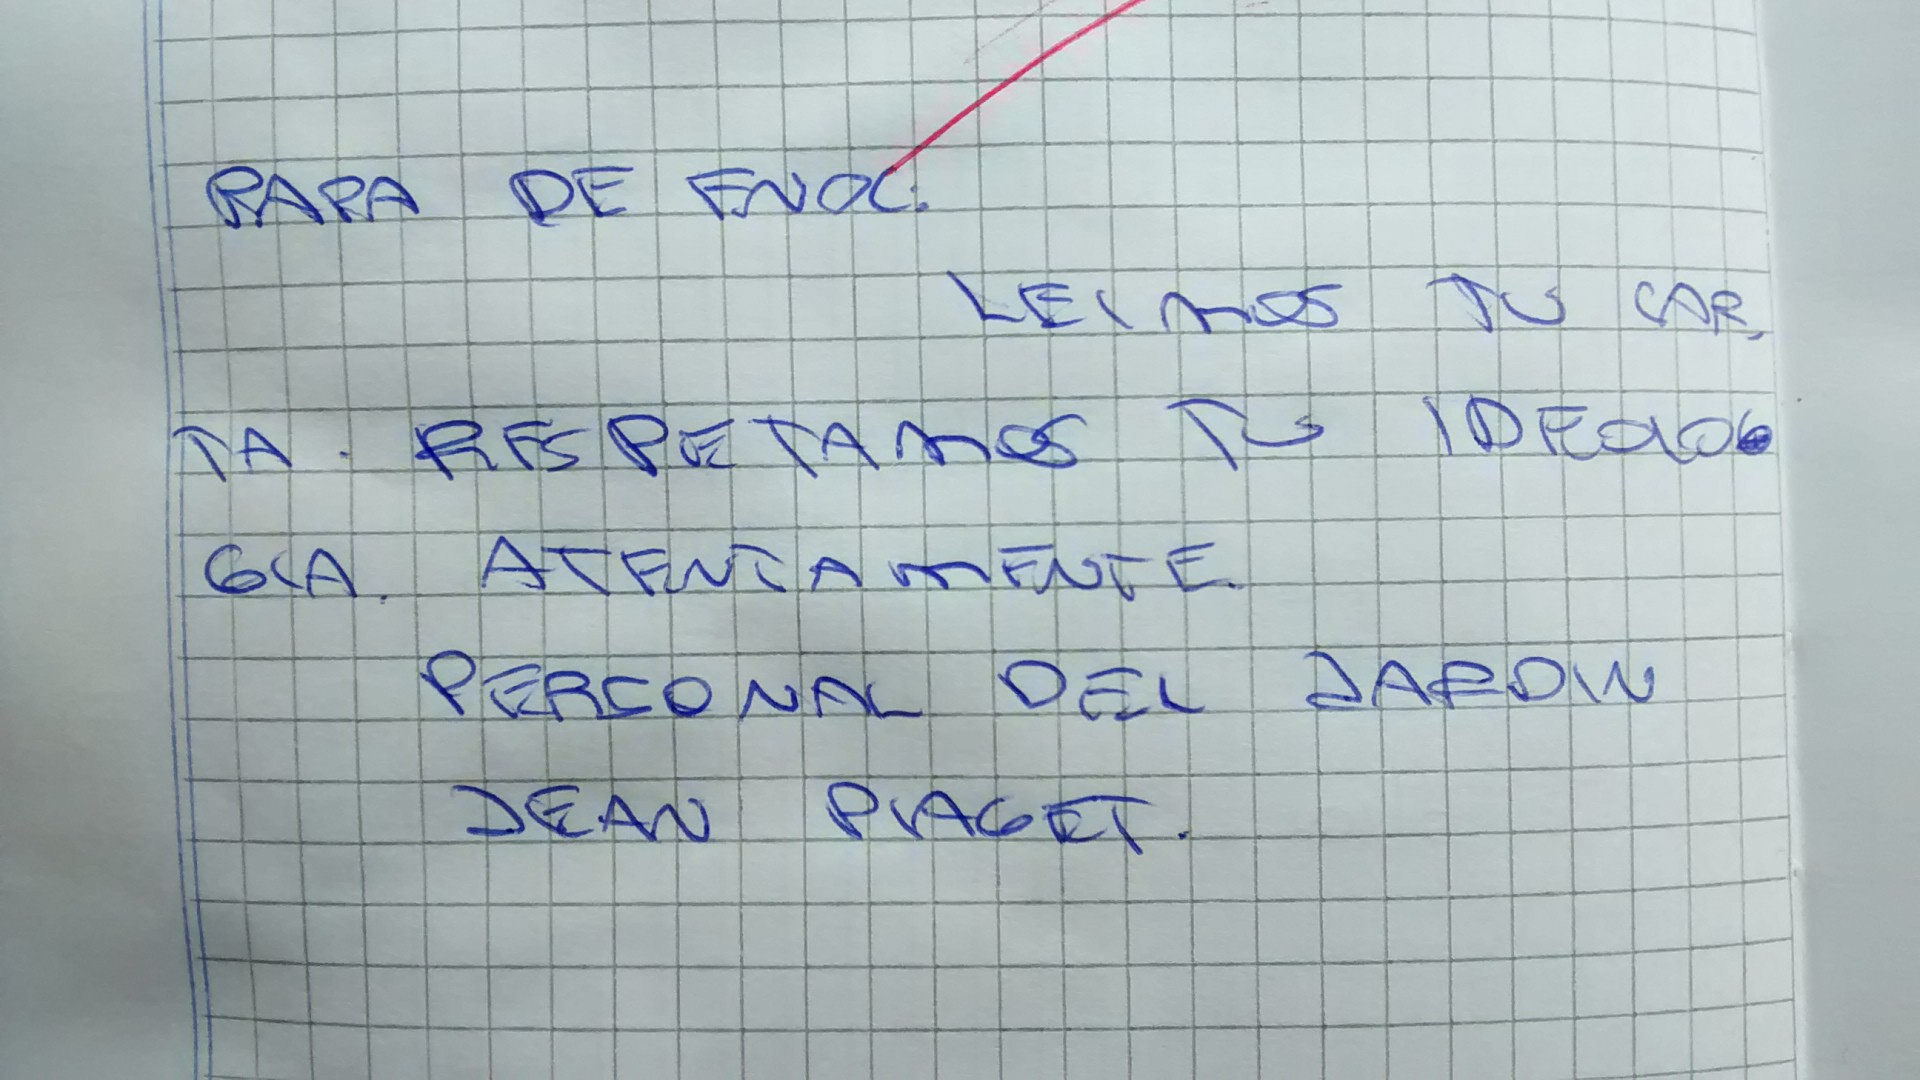 PAPA DE ENOC:
LEIMOS TU CAR,
TA. RESPETAMOS TU IDEOLOG
GIA. ATENTAMENTE.
PERSONAL DEL JARDIN
JEAN PIAGET.